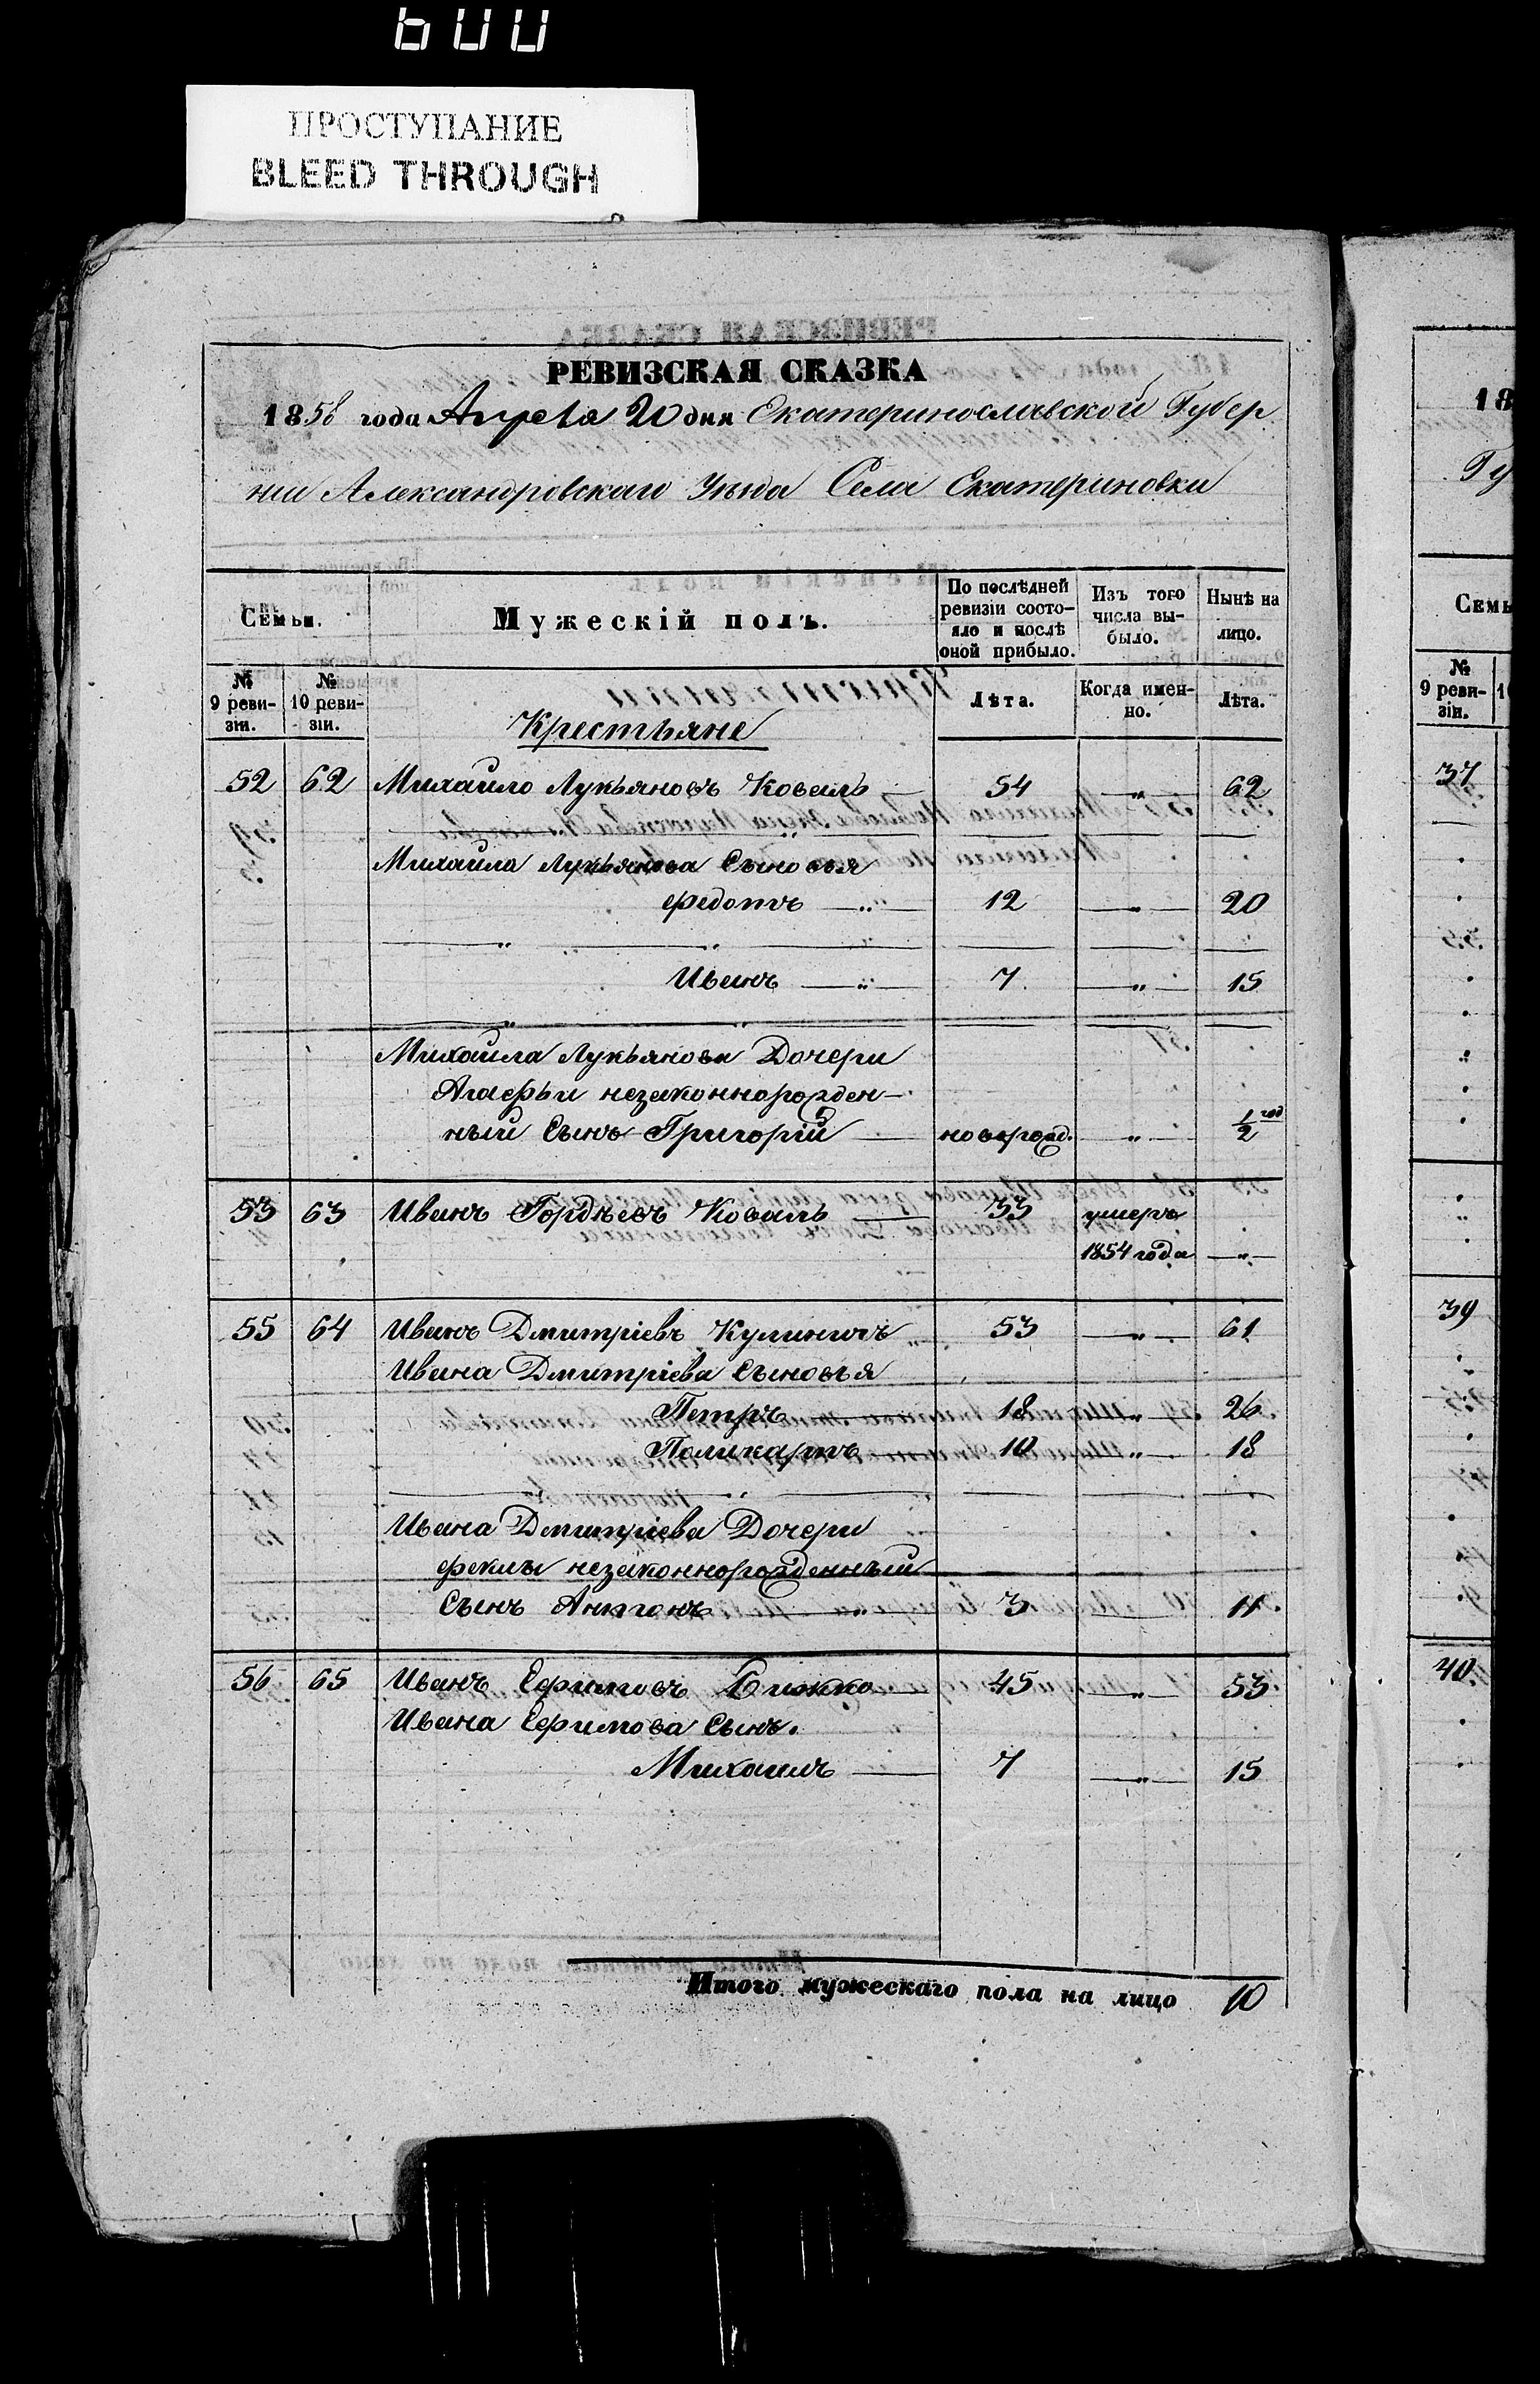 600
ПРОСТУПАНИЕ
BLEED THROUGH
РЕВИЗСКАЯ СКАЗКА
1858 года Апреля 20 дня Екатеринославской Губер
нии Александровскаго Уѣзда Села Екатериновки
Семьи. Мужескій полъ. По послѣдней ревизіи состояло и послѣ оной прибыло. Изъ того числа выбыло. Нынѣ на лицо.
№ 9 ревизіи. № 10 ревизіи. Лѣта. Когда именно. Лѣта.
Крестьяне
52 62 Михаило Лукьяновъ Коваль 54 „ 62
Михаила Лукьянова Сыновья
Федотъ „ 12 „ 20
„ „
Иванъ „ 7 „ 15
„ „
Михаила Лукьянова Дочери
Агафьи незаконнорожден-
ный Сынъ Григорій новорожд. „ ½ год
53 63 Иванъ Гордѣевъ Коваль 33 умеръ
1854 года „
55 64 Иванъ Дмитріевъ 53 „ 61
Ивана Дмитріева Сыновья
Петръ 18 „ 26
Поликарпъ 10 „ 18
Ивана Дмитріева Дочери
Феклы незаконнорожденный
Сынъ Антонъ „ 3 11
56 65 Иванъ Ефимовъ 45 „ 53
Ивана Ефимова Сынъ.
Михаилъ 7 „ 15
Итого мужескаго пола на лицо 10
18
Гу
Семь
№ 9 ревизіи.
37
39
40